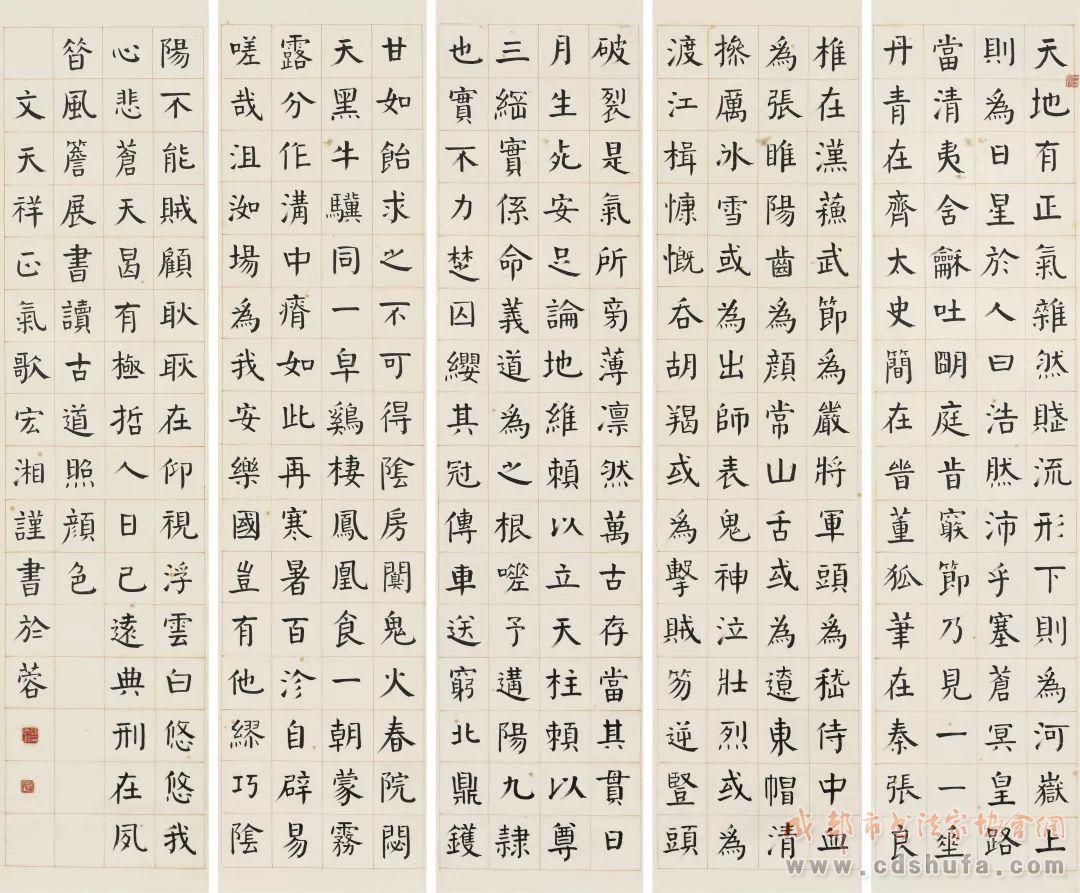 天地有正氣雜然賦流形下則為河嶽上
則為日星於人曰浩然沛乎塞蒼冥皇路
當清夷含龢吐朙庭旹竆節乃見一一垂
丹青在齊太史簡在晉董狐筆在秦張良
椎在漢蘇武節為嚴將軍頭為嵇侍中血
為張睢陽齒為顏常山舌或為遼東帽清
操厲冰雪或為出師表鬼神泣壯烈或為
渡江楫慷慨吞胡羯或為擊賊笏逆豎頭
破裂是氣所旁薄凛然萬古存當其貫日
月生死安足論地維賴以立天柱賴以尊
三綱實係命義道為之根嗟予遘陽九隷
也實不力楚囚纓其冠傳車送窮北鼎鑊
甘如飴求之不可得陰房闃鬼火春院閟
天黑牛驥同一皁鷄棲鳳凰食一朝蒙霧
露分作溝中瘠如此再寒暑百沴自辟易
嗟哉沮洳場為我安樂國豈有他繆巧陰
陽不能賊顧耿耿在仰視浮雲白悠悠我
心悲蒼天曷有極哲人日已遠典刑在夙
昝風簷展書讀古道照顔色
文天祥正氣歌宏湘謹書於蓉
成都市书法家协会网
www.cdshufa.com